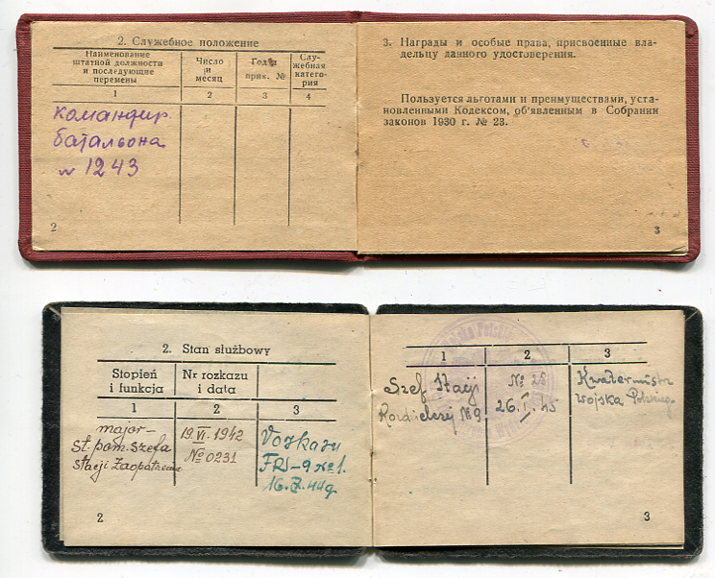 2. Служебное положение
Наименование штатной должности и последующие перемены
Число и месяц
Год и прик. №
Служебная категория
1 2 3 4
командир
батальона
№ 1243
2
3. Награды и особые права, присвоенные вла-
дельцу данного удостоверения.
Пользуется льготами и преимуществами, уста-
новленными Кодексом, об'явленным в Собрании
законов 1930 г. № 23.
3
2. Stan służbowy
Stopień i funkcja
Nr rozkazu i data
1 2 3
major-
St. pom. Szefa
Stacji
19.VI.1942
№ 0231
16.
44
2
1 2 3
Szef Stacji
№ 9
№ 25
26.I.45
Kwatermistrz
Wojska Polskiego
3